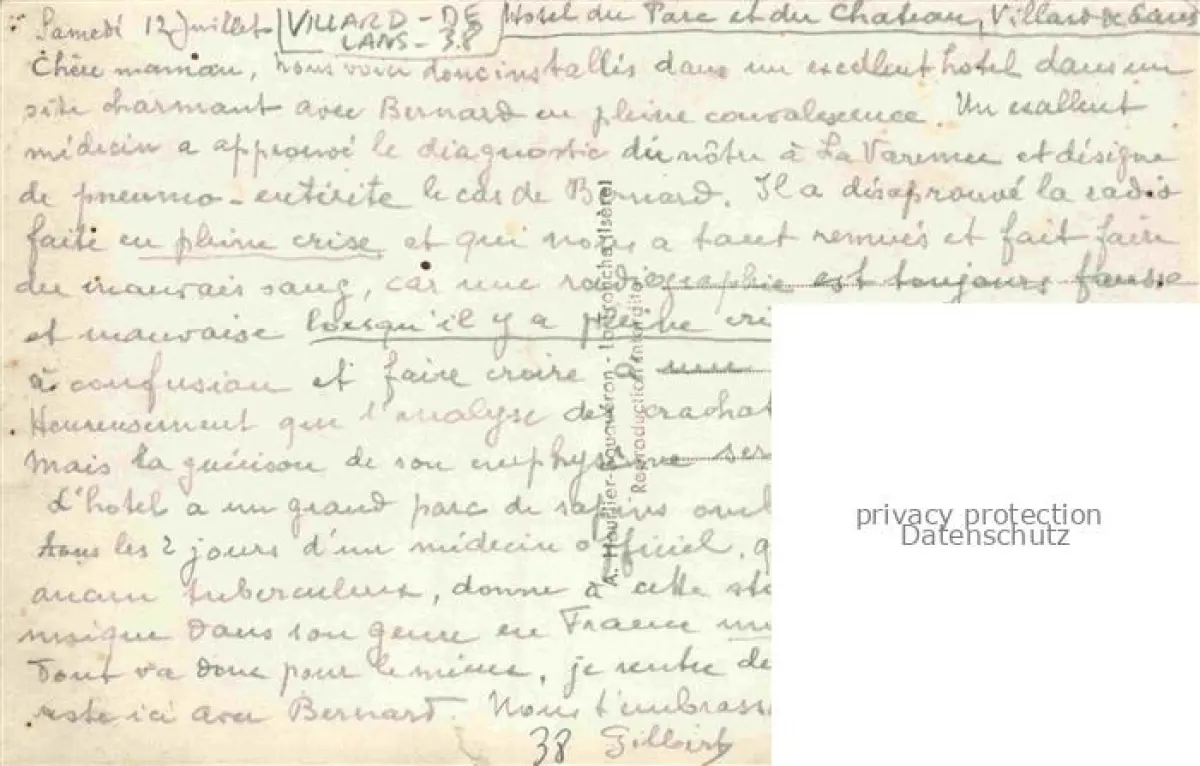 Samedi 12 Juillet VILLARD-DE LANS-38 Hotel du Parc et du Chateau, Villard de Lans
Chère maman, nous voici donc installés dans un excellent hotel dans un
site charmant avec Bernard en pleine convalescence. Un excellent
médecin a approuvé le diagnostic du nôtre à La Varenne et désigne
de pneumo-entérite le cas de Bernard. Il a désaprouvé la radio
faite en pleine crise et qui nous a tant remués et fait faire
du mauvais sang, car une radiographie est toujours fausse
et mauvaise lorsqu'il y a pleine cri
à confusion et faire croire à une
Heureusement que l'analyse des crachat
mais la guérison de son emphysème ser
L'hotel a un grand parc de sapins omb
tous les 2 jours d'un médecin officiel, q
aucun tuberculeux, donne à cette sta
unique dans son genre en France
Tout va donc pour le mieux, je rentre de
reste ici avec Bernard. Nous t'embrass
38 Gilbert
A. Hourlier-Bouquéron - Lafrancha (Isère)
Reproduction interdite
privacy protection
Datenschutz